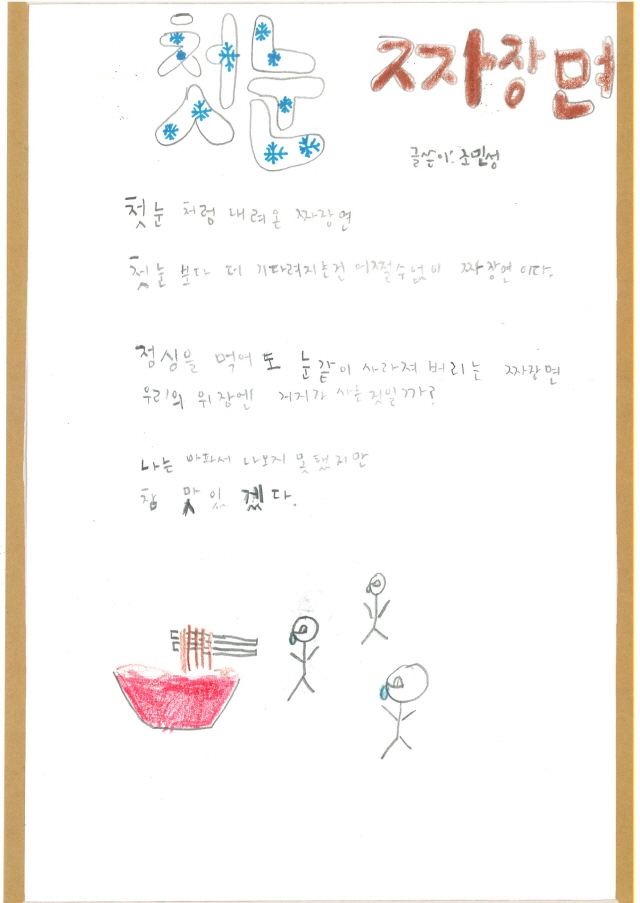 첫눈 짜장면
글쓴이: 조민성
첫눈 처럼 내려온 짜장면
첫눈 보다 더 기다려지는건 어쩔수없이 짜장면이다.
점심을 먹어도 눈같이 사라져 버리는 짜장면
우리의 위장엔 거지가 사는것일까?
나는 아파서 나오지 못했지만
참 맛있겠다.